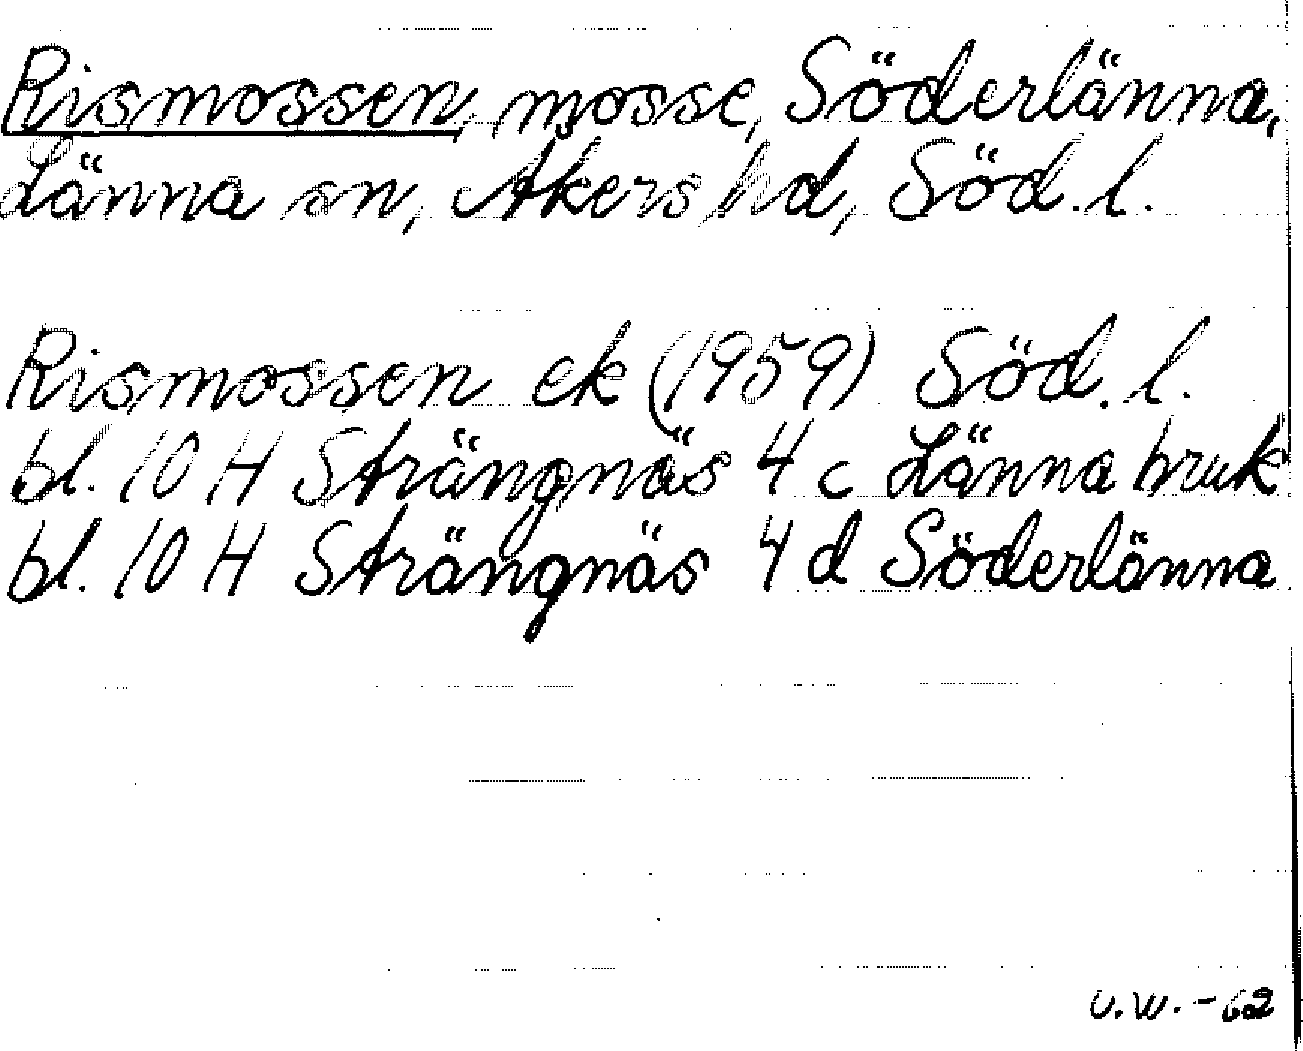 Rismossen, mosse, Söderlänna,
Länna sn, Åkers hd, Söd.l.
Rismossen ek (1959) Söd.l.
bl. 10 H Strängnäs 4 c Länna bruk
bl. 10 H Strängnäs 4 d Söderlänna
U.W.-62